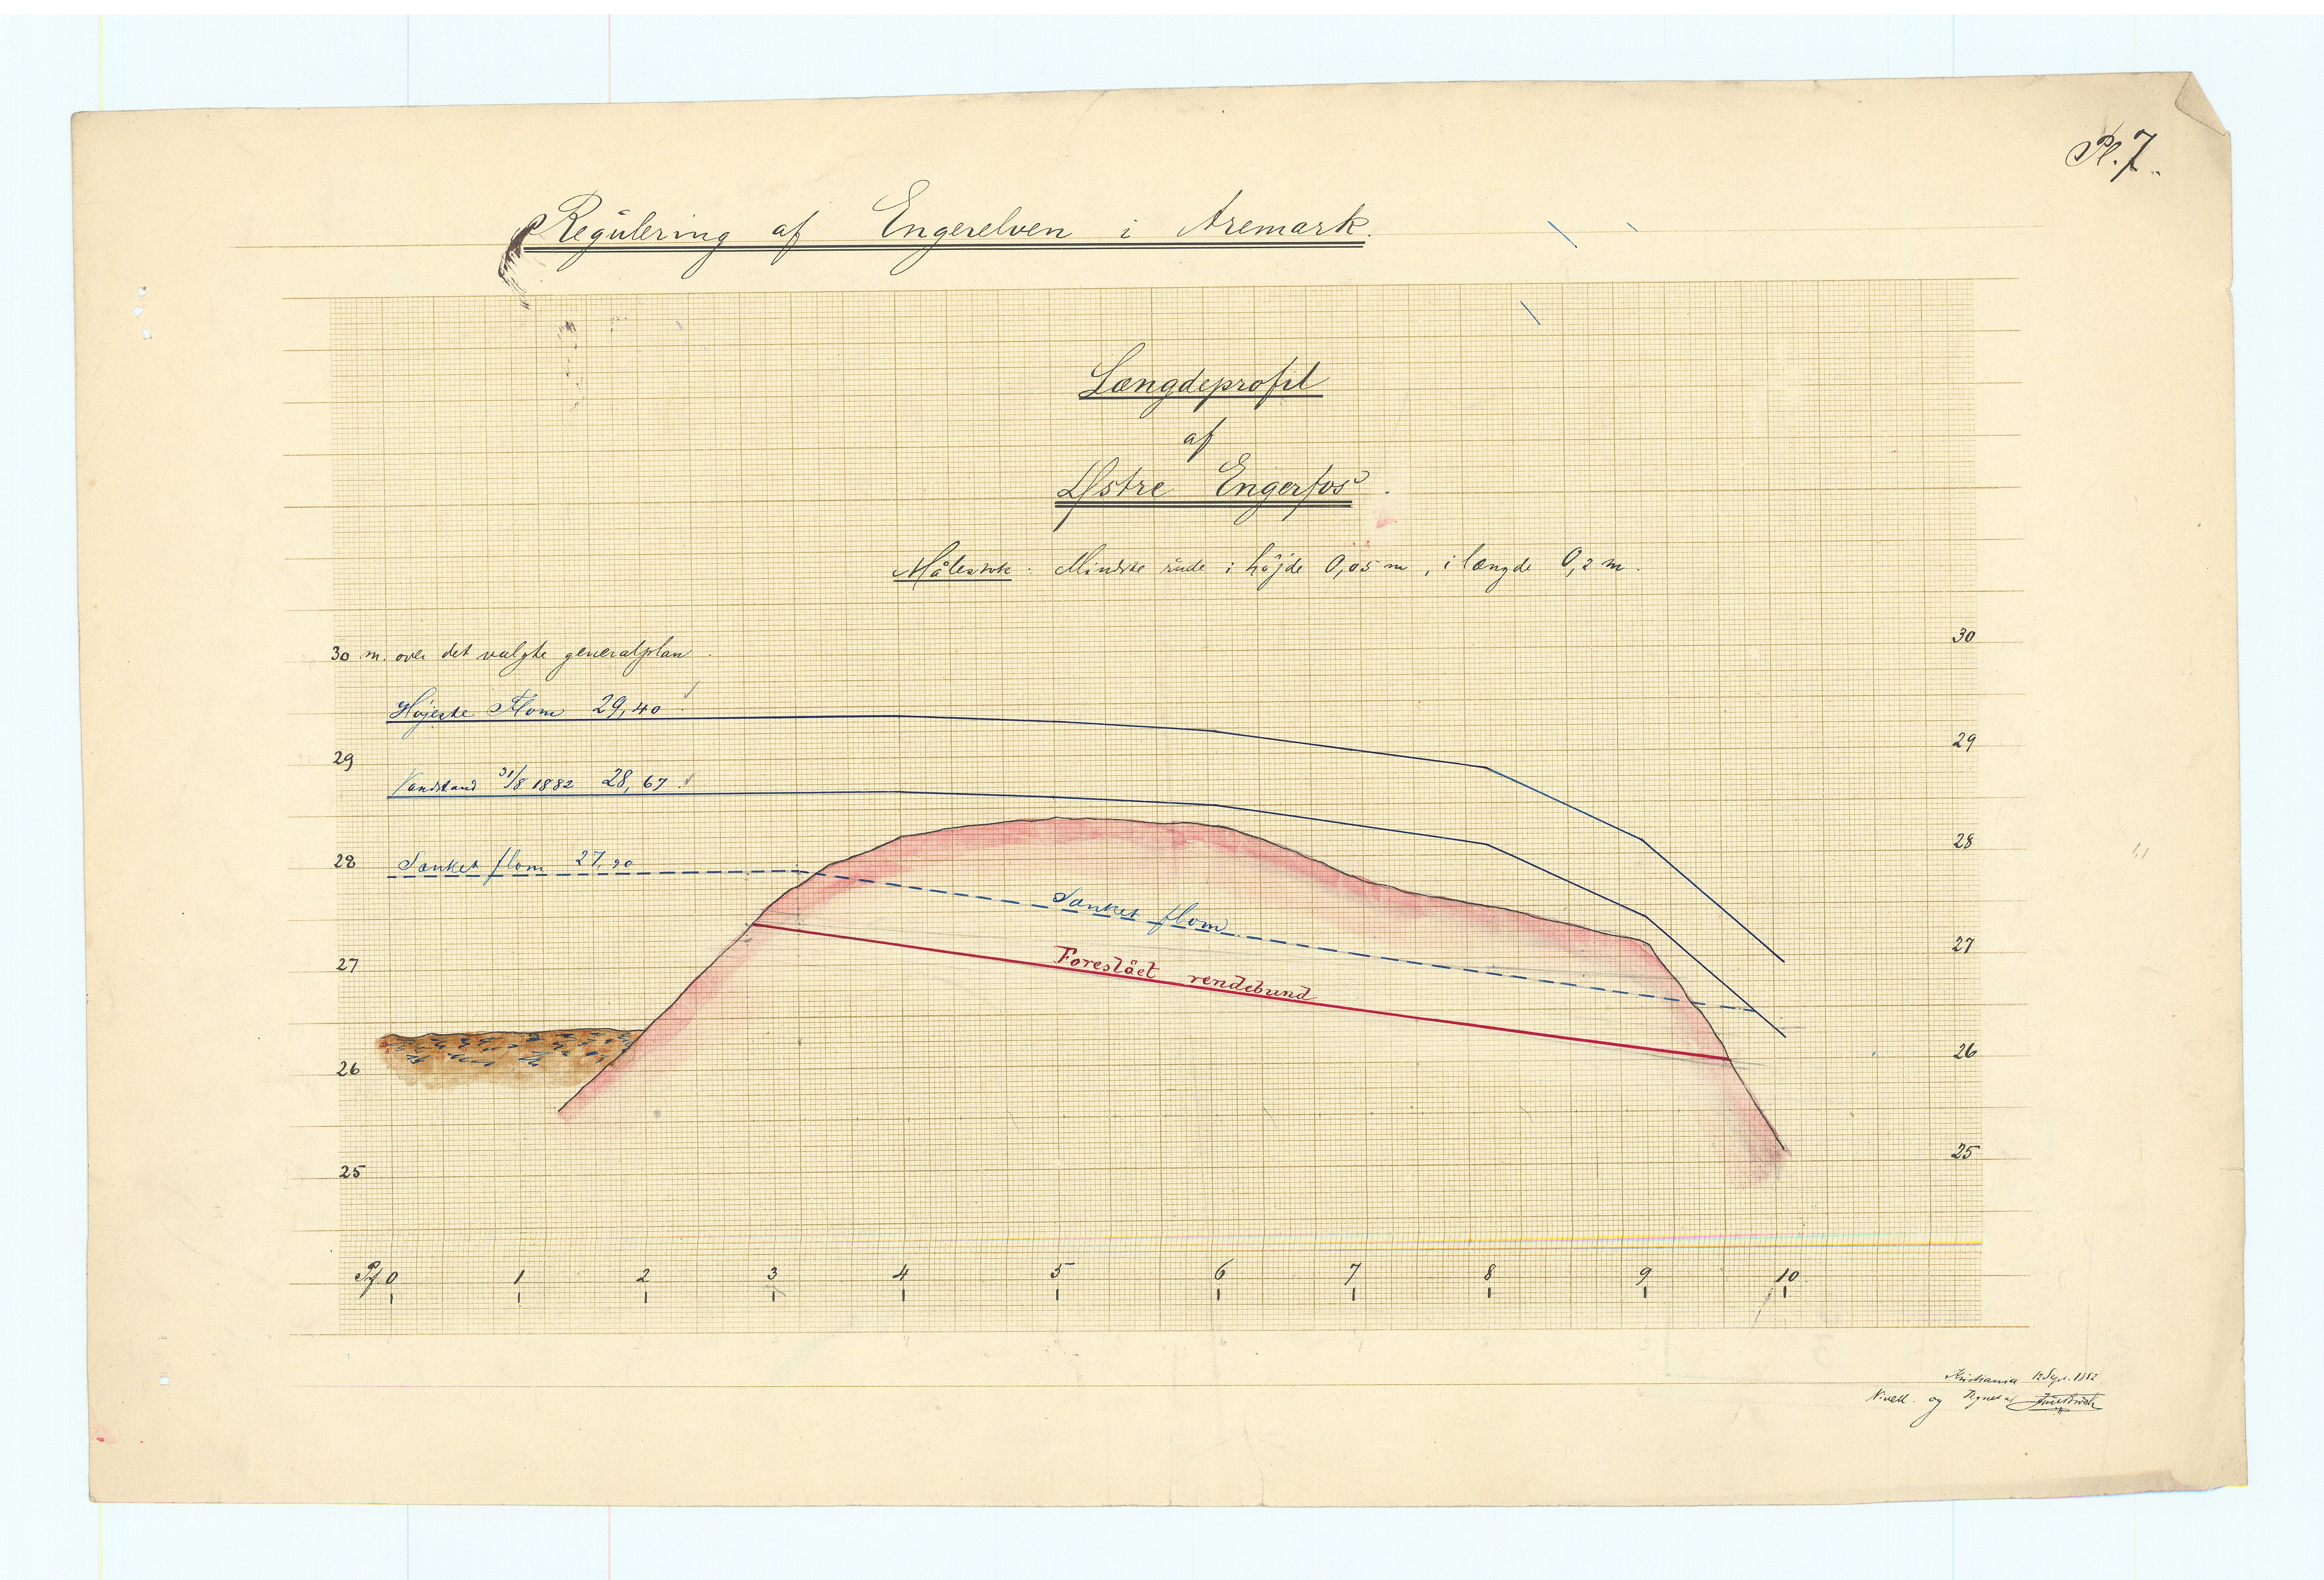 Pl. 7.
Regulering af Engerelven i Aremark.
Længdeprofil
af
Østre Engerfos.
Målestok: Mindste rude i høјde 0,05 m, i længde 0,2 m.
30 m. over det valgte generalplan.
30
Højeste Flom 29,40
29
29
Vandstand 31/8 1882 28,67.
28
28
Sænket flom 27,90
Sænket flom
27
27
Foreslået rendebund
26
26
25
25
Pf. 0 1 2 3 4 5 6 7 8 9 10
Kristiania 12 Sept. 1882
Nivell. og Tegnet af